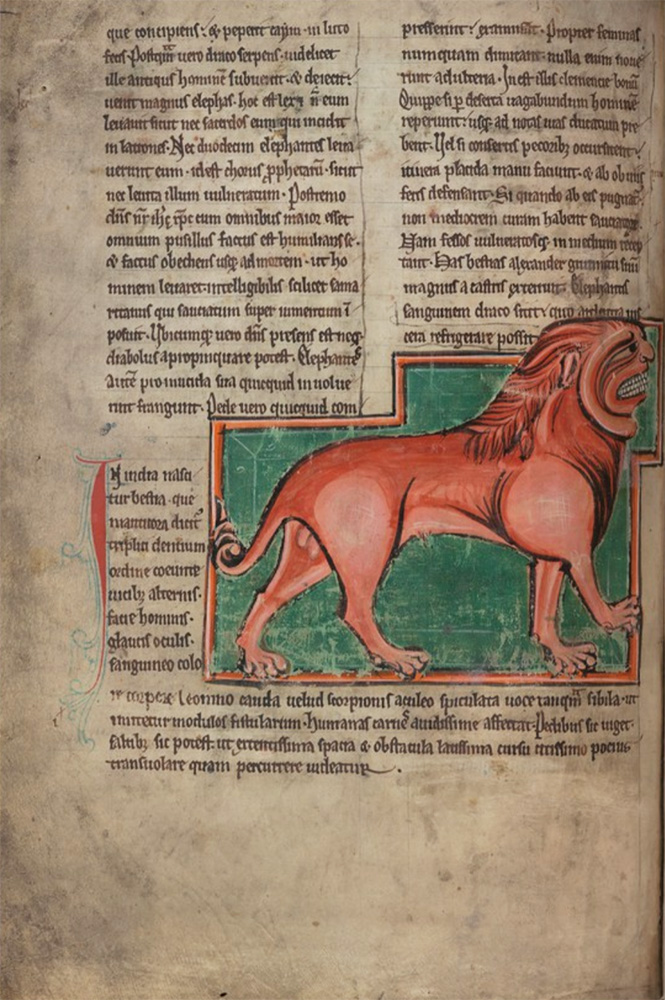 que concipiens · & peperit caym · in luto
fetus · Postq̄ͣ uero draco serpens · uidelicet
ille antiquus hominē subuertit · & deiecit ·
uenit magnus elephas · hoc est lex · n̄ eum
leuauit sicut nec sacerdos eum qui incidit
in latrones · Nec duodecim elephantes leua
uerunt eum · id est chorus ꝓphetarū · sicut
nec leuita illum uulneratum · Postremo
dn̄s nr̄ ihc̄ xp̄c cum omnibus maior esset
omnium pusillus factus est humilians se ·
& factus obediens usq; ad mortem · ut ho
minem leuaret · intelligibilis scilicet sama
ritanus qui sauciatum super iumentum ī
posuit · Ubicumq; uero dn̄s presens est neq;
diabolus apropinquare potest · Elephantes
autē promuscida sua quicquid inuolue
rint frangunt · Pede uero quicquid com
presserint
Propter feminas
numquam dimicant · nulla enim noue
runt adulteria · Inest illis clementie bonū
Quippe si ꝑ deserta uagabundum hominē
reperiunt · usq; ad notas uias ducatum pre
bent · Uel si consertis pecorib; occursitent
itinera placida manu faciunt · & ab obuiis
feris defensant · Si quando ab eis pugnat̄
non mediocrem curam habent sauciorum
Nam fessos uulneratosq; in medium recep
tant · Has bestias alexander
magnus a castris Elephantis
sanguinem draco sitit · quo
refrigerare possit
IN india nasci
tur bestia · que
manticora dicit̄
triplici dentium
ordine coeunte
uicib; alternis ·
facie hominis ·
glaucis oculis ·
sanguineo colo
re corpore leonino cauda uelud scorpionis aculeo spiculata uoce tanq̄ͣ sibila · ut
imitetur modulos fistularum · humanas carnes auidissime affectat · Pedibus sic uiget ·
saltib; sic potest ut extentissima spacia & obstacula latissima cursu citissimo pocius
transuolare quam percurrere uideatur